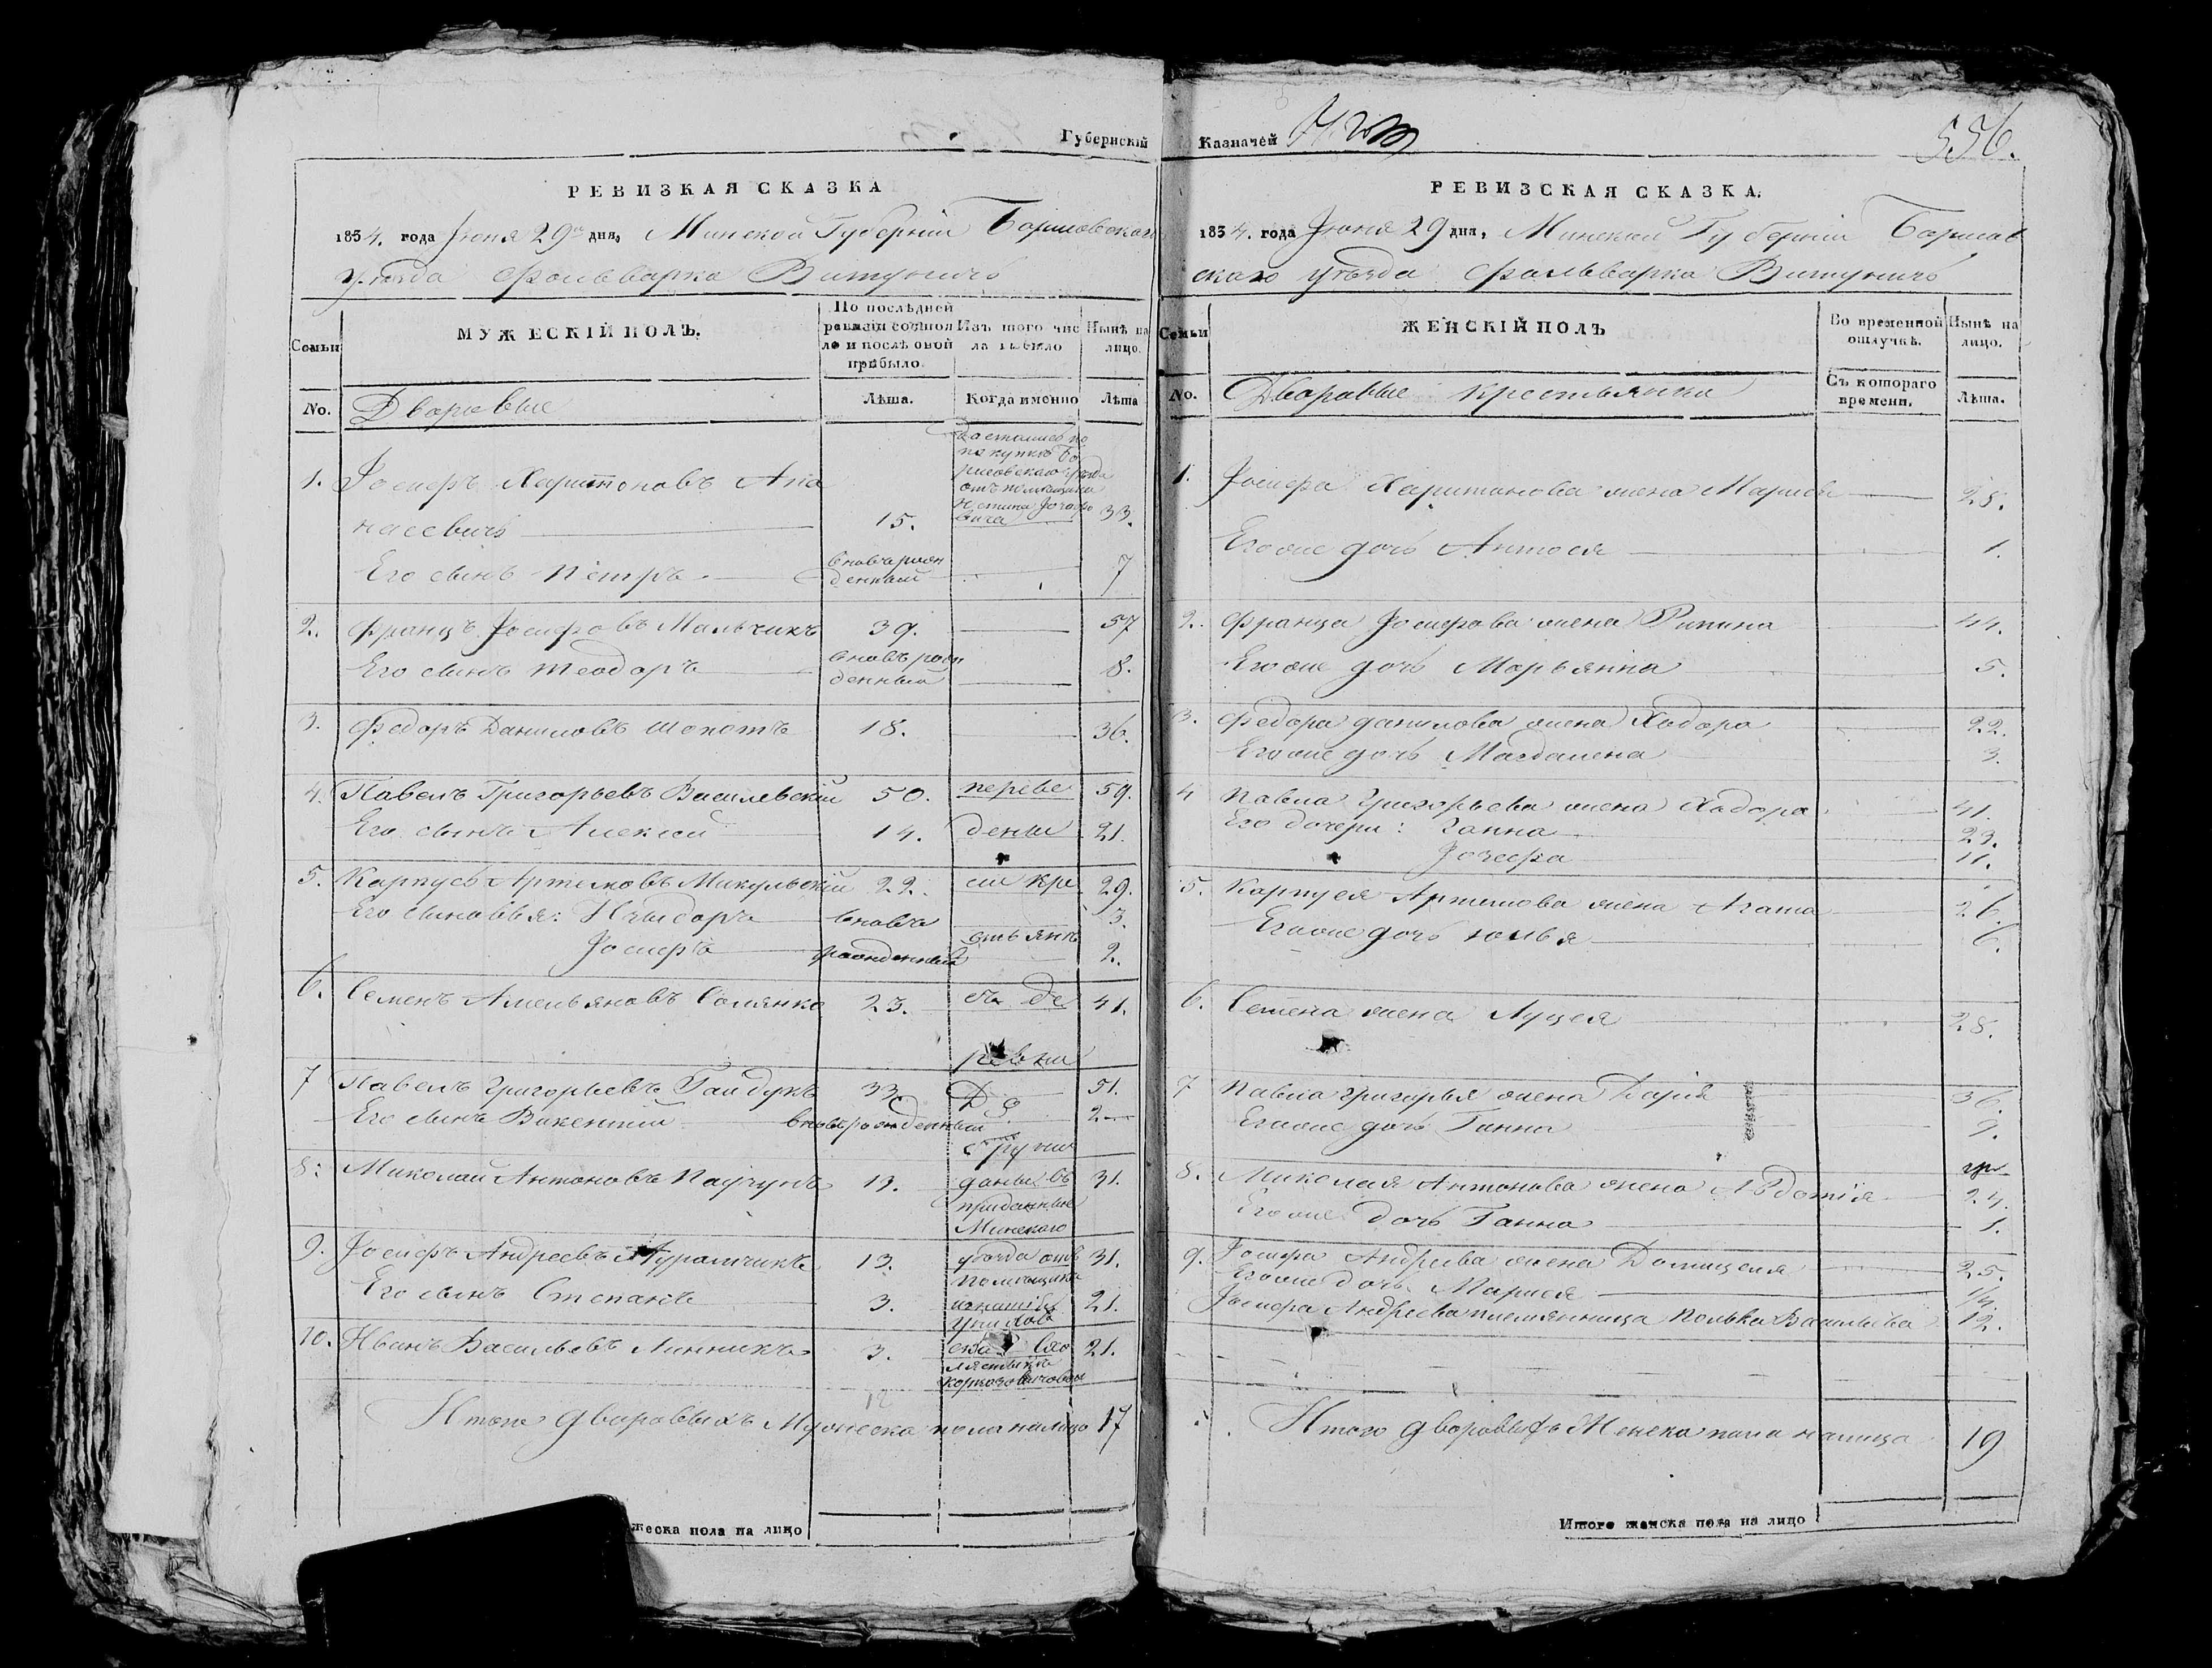 Губернскій
РЕВИЗКАЯ СКАЗКА
1834. года Іюня 29го дня, Минской Губерніи Борисовскаго
Уѣзда Фольварка Витуничъ
Семьи
МУЖЕСКІЙ ПОЛЪ.
По послѣдней ревизіи состояло и послѣ оной прибыло
Изъ того числа выбыло
Нынѣ на лицо.
No.
Дворовые
Лѣта.
Когда именно
Лѣта
1. Іосифъ Харитоновъ Апа
насевичъ 15. 33.
Достались по
покупкѣ Бо
рисовскаго уѣзда
отъ помещика
Его сынъ Петръ вновьрож
денный 7
2. Францъ Іосифовъ Мальчикъ 39. 57
Его сынъ Теодоръ вновърож
денный 8.
3. Федоръ Даниловъ Шопотъ 18. 36.
4. Павелъ Григорьевъ Василевскій 50. переве 59.
Его сынъ Алексей 14. дены 21.
5. Карпусь Артимовъ Микульскій 22. сіи кре 29.
Его сыновья: Изыдоръ вновъ 3.
Іосифъ рожденный стьянъ 2.
6. Семенъ Амельяновъ Сомянко 23. съ де 41.
ревни
7 Павелъ Григорьевъ Гайдукъ 33. 51.
Его сынъ Викентій вновърожденный 2
8. Миколай Антоновъ Пацунъ 13. даные въ 31.
приданные
Минского
9. Іосифъ Андреевъ Аурамчикъ 13. уѣзда отъ 31.
помѣщика
Его сынъ Степанъ 3. 21.
10. Иванъ Васильевъ Линникъ 3. 21.
12
Итого дворовыхъ Мужеска пола налицо 17
жеска пола на лицо
Казначей
556.
РЕВИЗСКАЯ СКАЗКА.
1834. года Іюня 29 дня, Минской Губерніи Борисов
скаго уѣзда фольварка Витуничъ
Семьи
ЖЕНСКІЙ ПОЛЪ
Во временной отлучкѣ.
Нынѣ на лицо.
No.
Дворовые крестьянки
Съ котораго времени.
Лѣта.
1. Іосифа Харитонова жена Марися 28.
Его же дочь Антося 1.
2. Франца Іосифова жена Рипина 44.
Его же дочь Марьянна 5.
3. Федора данилова жена Ходора 22.
Его же дочь Магдалена 3.
4 Павла Григорьева жена Ходора 41.
Его дочери: Ганна 23.
Іозефа 11.
5. Карпуся Артимова жена Агата 26.
Его же дочь Юлья 6.
6. Семена жена Луцея 28.
7 Павла григорья жена Дарія 36.
Его же дочь Ганна 9.
8. Миколая Антонова жена Авдотія 24.
Его же дочь Ганна 1.
9. Іосифа Андреева жена Домицеля 25.
Его же дочь Марися 1/4.
Іосифа Андреева племянница Полька Васильева 12.
Итого дворовыхъ Женска пола налицо 19
Итого женска пола на лицо